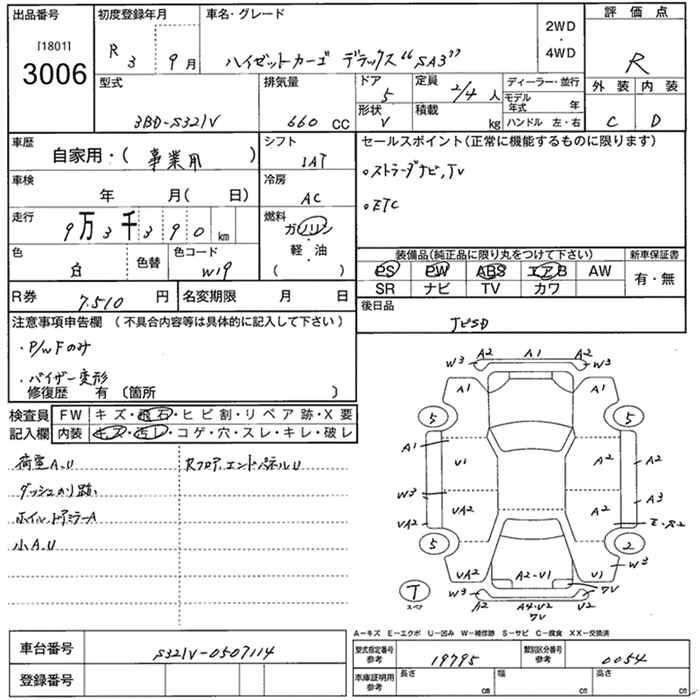 出品番号 初度登録年月 車名・グレード 評価点
[1801]
3006
R 3 9月 ハイゼットカーゴ デラックス"SA3" 2WD・4WD R
型式 排気量 ドア 定員 ディーラー・並行 外装 内装
3BD-S321V 660 CC 5 2/4 人 モデル年式 年 C D
形状 V 積載 kg ハンドル 左・右
車歴 シフト セールスポイント(正常に機能するものに限ります)
自家用・(事業用) IAT
・ストラーダナビ,TV
車検 冷房
年 月( 日) AC
・ETC
走行 燃料
9万3千390km ガソリン・軽油( )
色 色替 色コード 装備品(純正品に限り丸をつけて下さい) 新車保証書
白 W19 PS PW ABS エアB AW 有・無
SR ナビ TV カワ
R券 7.510 円 名変期限 月 日 後日品
注意事項申告欄(不具合内容等は具体的に記入して下さい)
・P/wFのみ
・バイザー変形
修復歴 有〔箇所 〕
検査員記入欄 FW キズ・飛石・ヒビ割・リペア跡・X要
内装 キズ・汚レ・コゲ・穴・スレ・キレ・破レ
荷室A.U RフロアエンドパネルU
ダッシュのり跡
ホイル、ドアミラーA
小A.U
W3 A2 A1 A2 W3
A1 A1
5 5
A1 U1 A2 A2
W3 UA2 A2 A3
UA2 E・R2
5 2
UA2 A2-U1 U1 W3
T スペア W3 ワV
A2 A4・V2 V2
ワV
A-キズ E-エクボ U-凹み W-補修跡 S-サビ C-腐食 XX-交換済
車台番号 S321V-0507114 型式指定番号 参考 19795 類別区分番号 参考 0054
登録番号 車庫証明用 参考 長さ cm 幅 cm 高さ cm